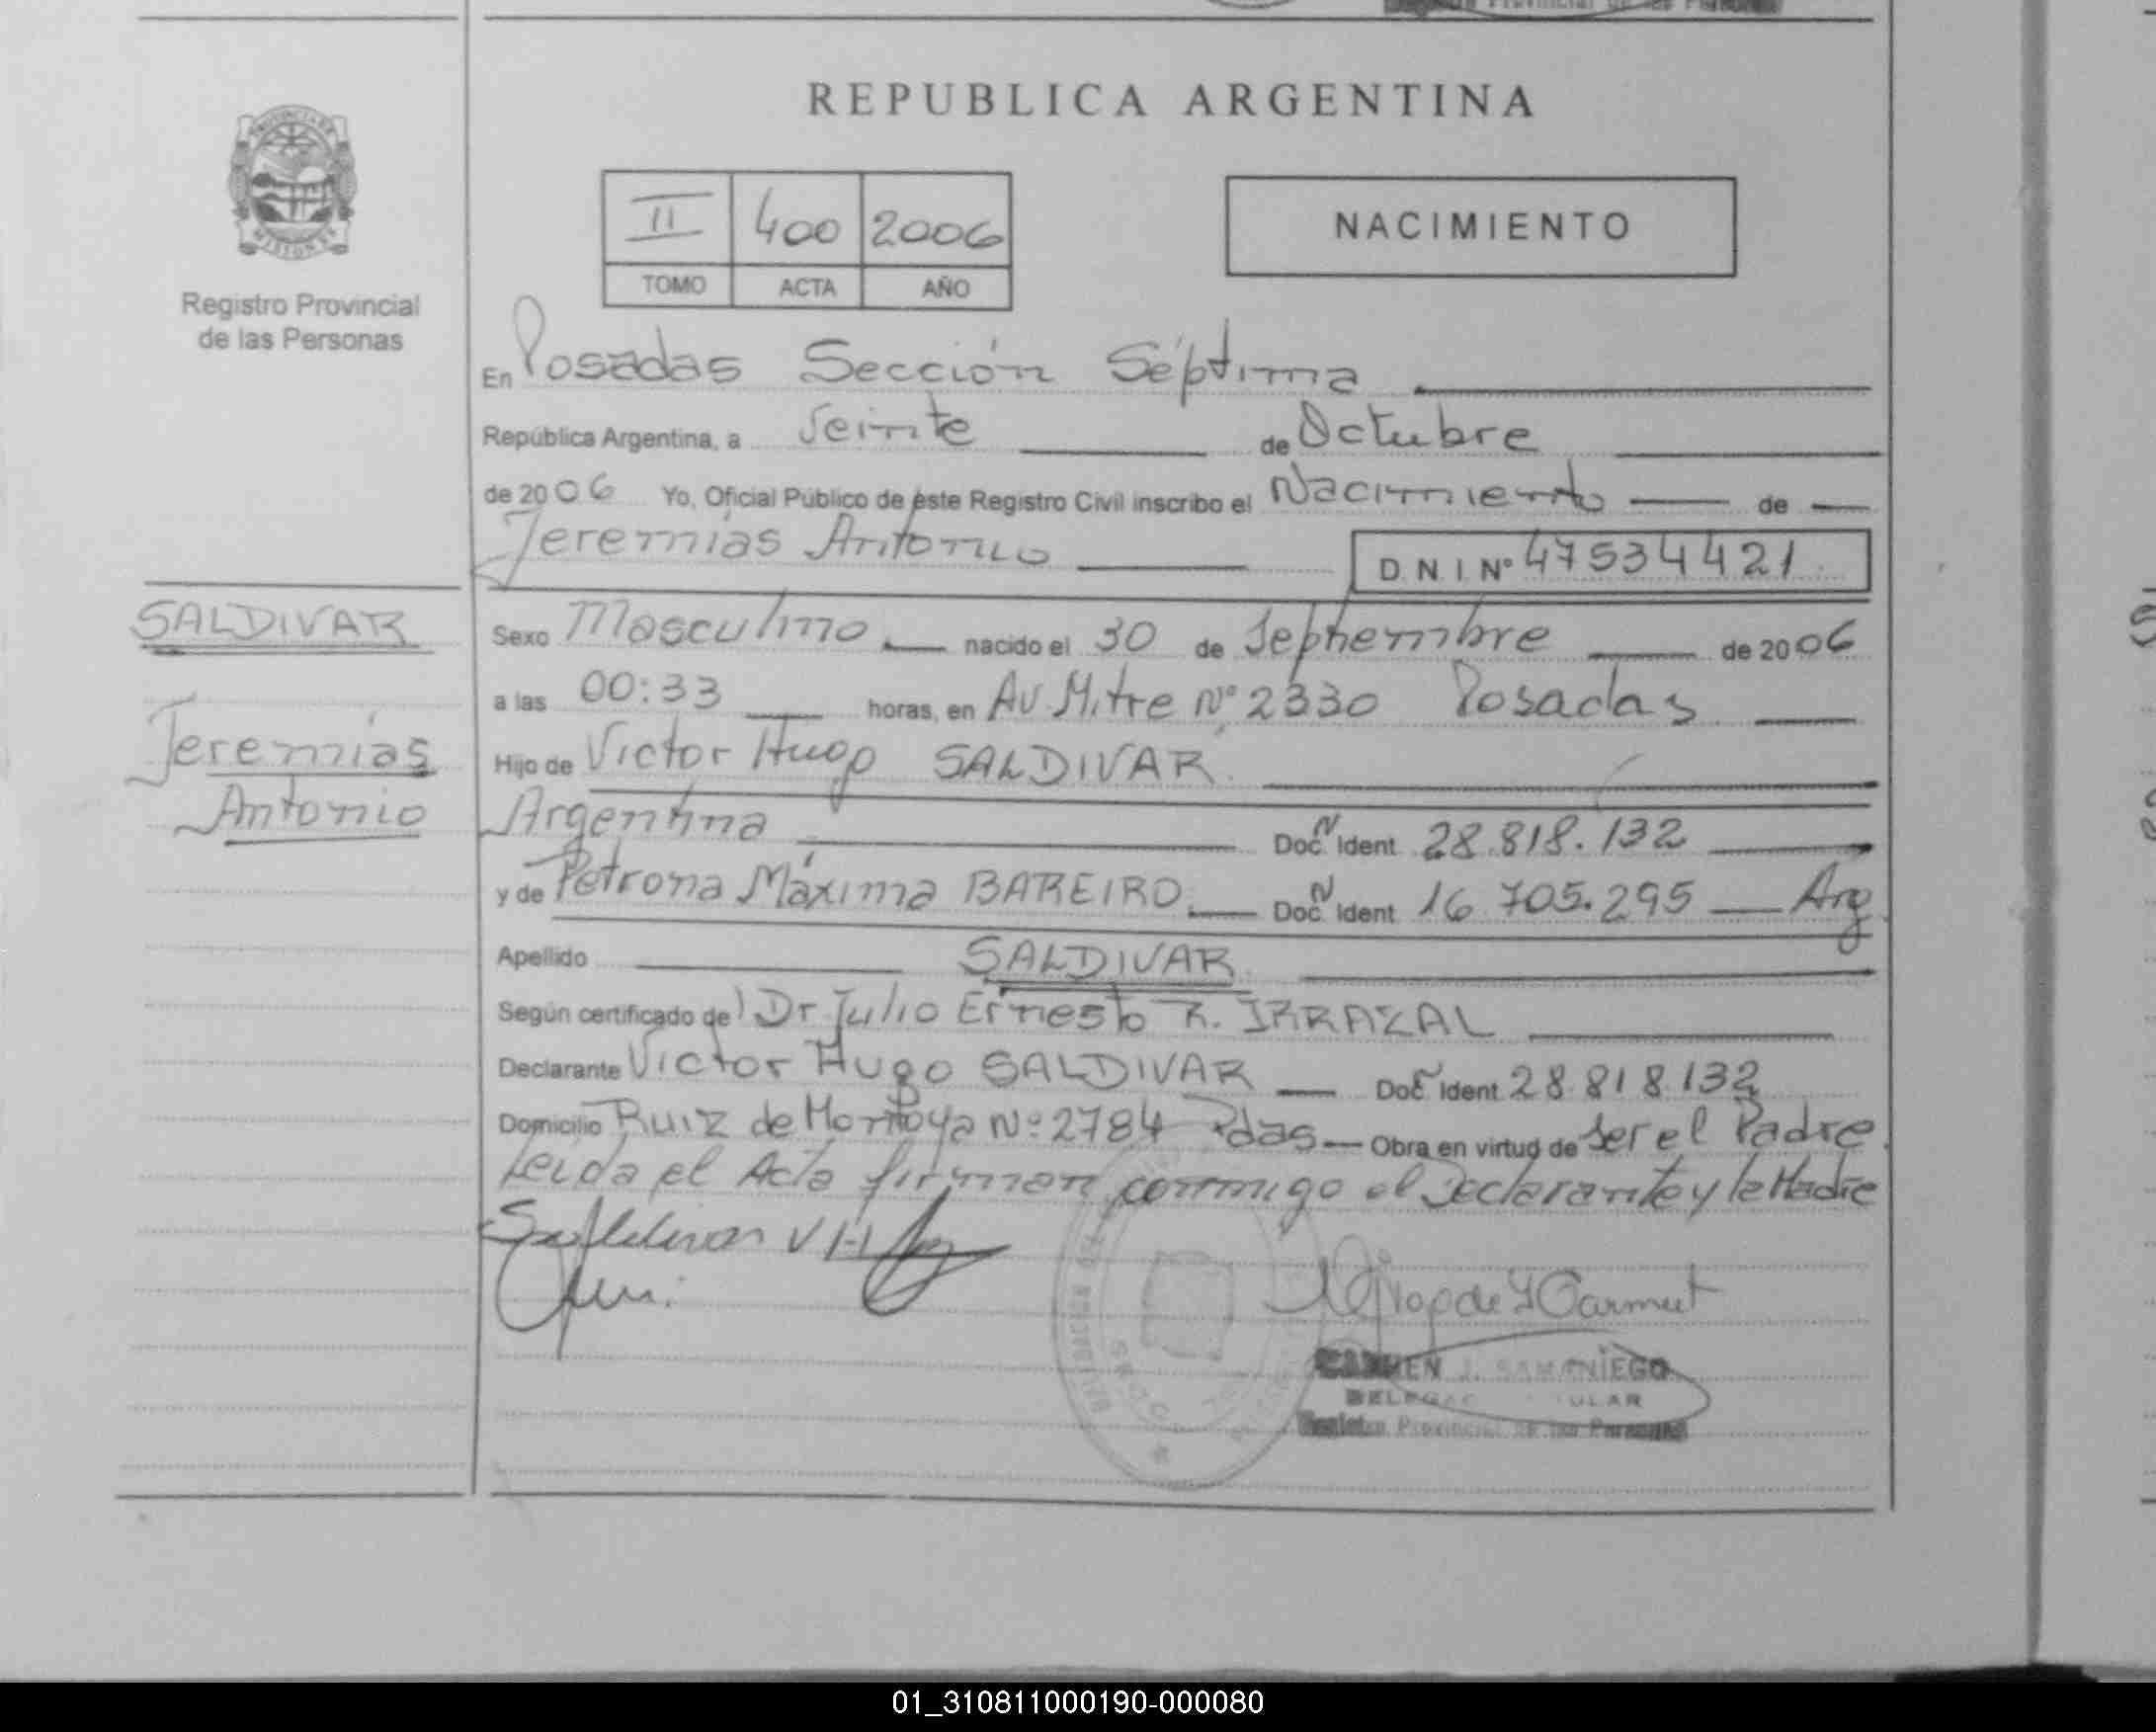 REPUBLICA ARGENTINA
II 400 2006
TOMO ACTA AÑO
NACIMIENTO
Registro Provincial
de las Personas
En Posadas Sección Séptima
República Argentina, a Veinte de Octubre
de 2006 Yo, Oficial Público de este Registro Civil inscribo el Nacimiento de
Jeremias Antonio D.N.I. Nº 47534421
SALDIVAR
Jeremias
Antonio
Sexo Masculino nacido el 30 de Septiembre de 2006
a las 00:33 horas, en Av. Mitre Nº 2330 Posadas
Hijo de Victor Hugo SALDIVAR
Argentina Doc. N Ident 28.818.132
y de Petrona Máxima BAREIRO Doc. N Ident 16.705.295 Arg
Apellido SALDIVAR
Según certificado de Dr Julio Ernesto R. IRRAZAL
Declarante Victor Hugo SALDIVAR Doc. Ident 28.818.132
Domicilio Ruiz de Montoya Nº 2784 Pdas Obra en virtud de ser el Padre
Leida el Acta firman conmigo el Declarante y la Madre
Saldivar V H
CARMEN J. SAMANIEGO
Registro Provincial de las Personas
01_310811000190-000080